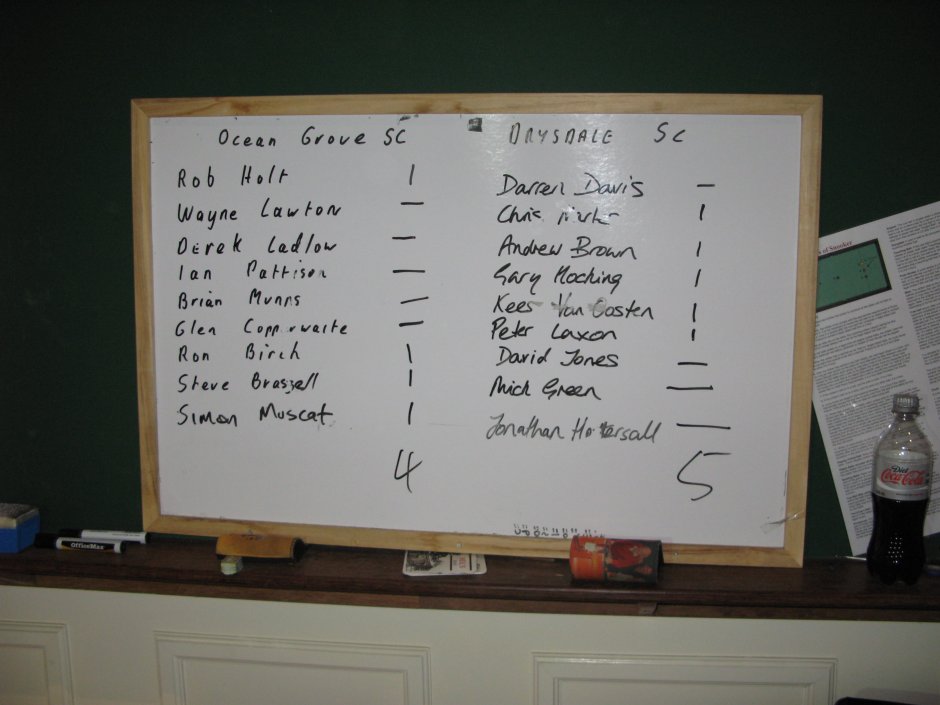 Ocean Grove SC
Rob Holt 1
Wayne Lawton —
Derek Ladlow —
Ian Pattison —
Brian Munns —
Glen Copperwaite —
Ron Birch 1
Steve Braszell 1
Simon Muscat 1
4
DRYSDALE SC
Darren Davis —
Chris 1
Andrew Brown 1
Gary Hocking 1
Kees Van Oosten 1
Peter Laxon 1
David Jones —
Mick Green —
Jonathan —
5
of Snooker
OfficeMax
Diet
Coca-Cola